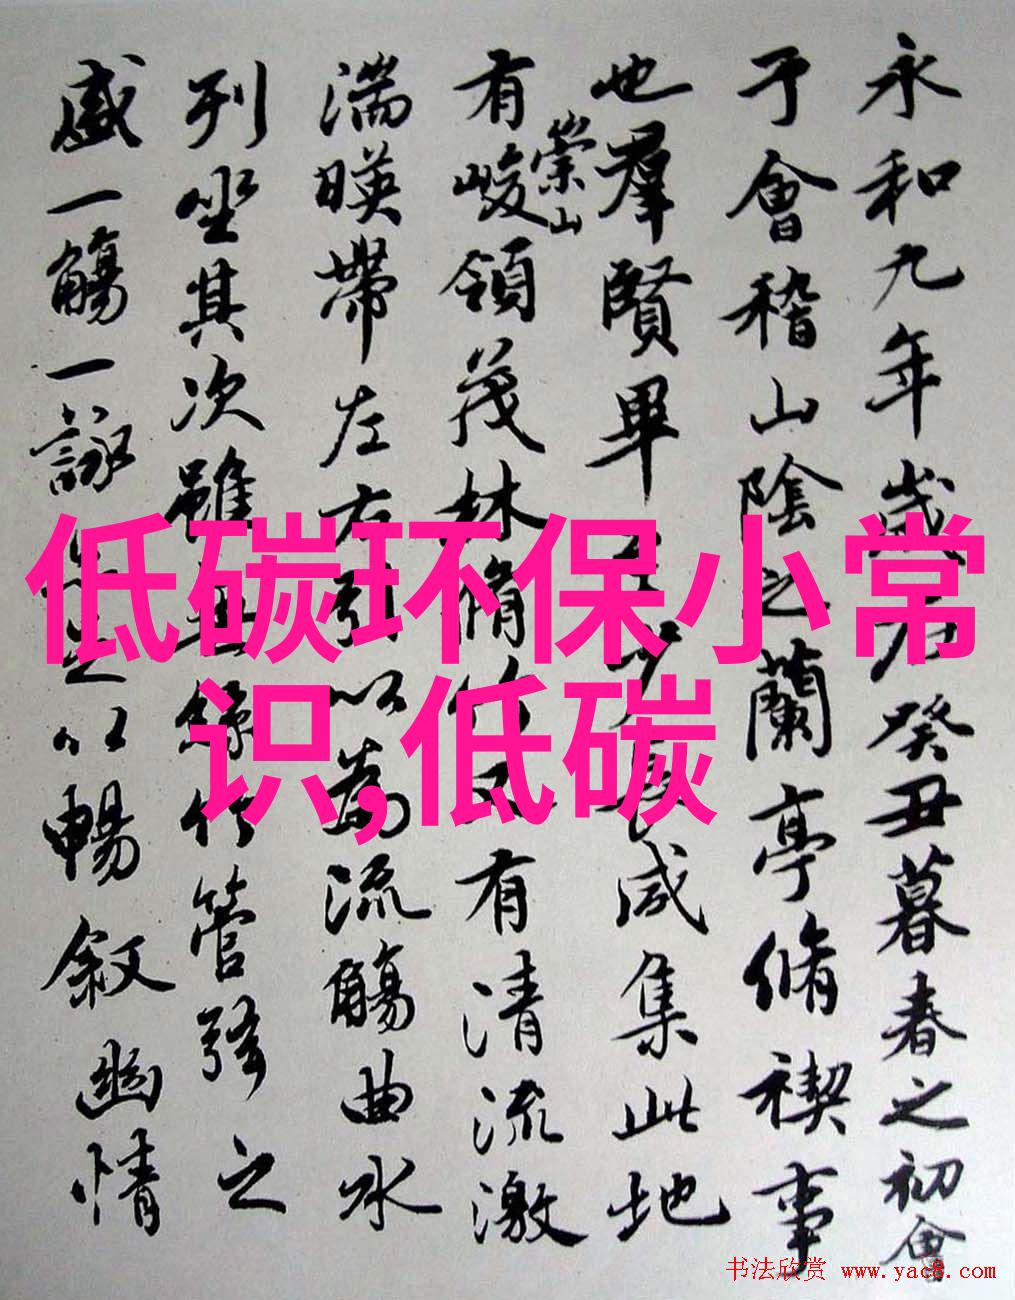 永和九年歲在癸丑暮春之初會
于會稽山陰之蘭亭脩禊事
也羣賢畢至少長咸集此地
有崇山峻領茂林脩竹又有清流激
湍暎帶左右引以為流觴曲水
列坐其次雖無絲竹管弦之
盛一觴一詠足以暢敘幽情
低碳环保小常
识,低碳
书法欣赏 www.yac8.com